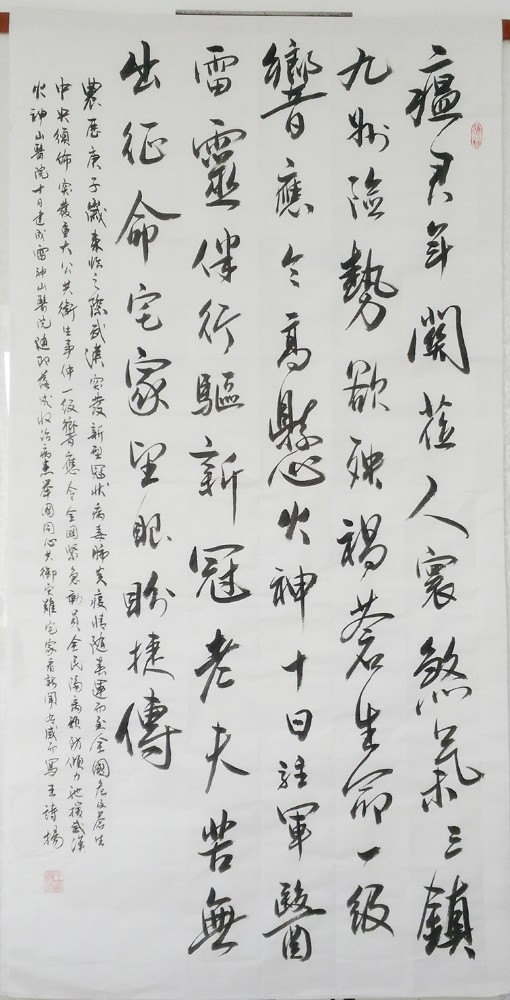 瘟君年關蒞人寰煞氣三鎮
九州險勢欲殃禍蒼生命一級
響應令高懸火神十日駐軍醫
雷靈伴行驅新冠老夫苦無
出征命宅家望眼盼捷傳
農歷庚子歲末臨之際武漢突發新型冠狀病毒肺炎疫情隨春運而至全國危及蒼生
中央頒佈突發重大公共衛生事件一級響應令全國緊急動員全民隔離預防傾力馳援武漢
火神山醫院十日建成雷神山醫院隨即落成收治病患舉國同心共御災難宅家看新聞有感而寫王詩揚